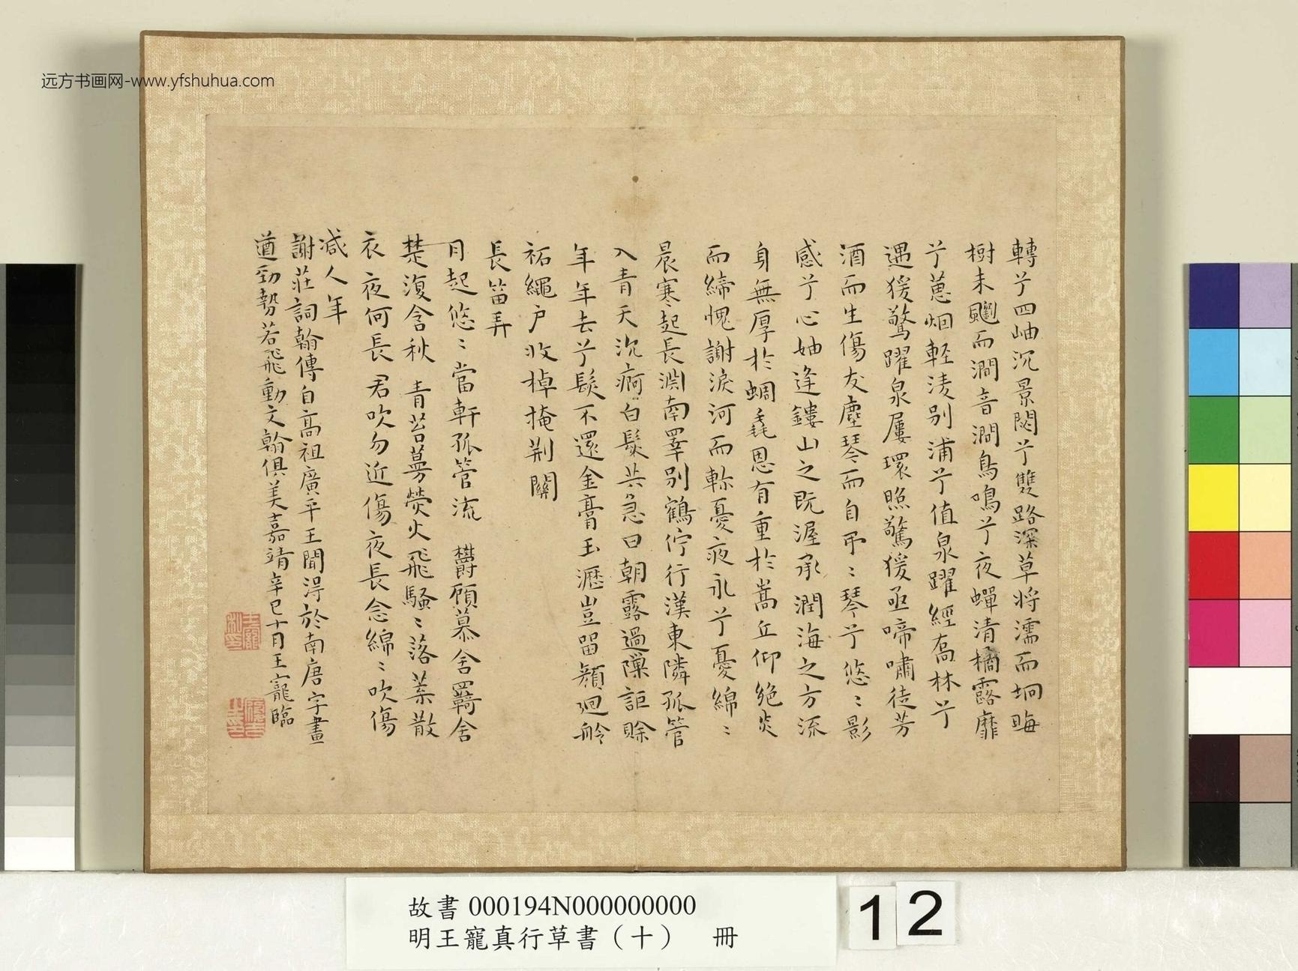 远方书画网-www.yfshuhua.com
轉兮四岫沉景閟兮雙路深草将濡而坰晦
樹未飀而澗音澗鳥鳴兮夜蟬清橘露靡
兮蕙烟輕淩别浦兮值泉躍經喬林兮
遇猨驚躍泉屢環照驚猨亟啼嘯徒芳
酒而生傷友塵琴而自弔弔琴兮悠悠影
感兮心妯逢鏤山之既渥承潤海之方流
身無厚於蜩毳恩有重於嵩丘仰絶炎
而締愧謝淚河而軫憂夜永兮憂綿綿
晨寒起長淵南罣别鶴佇行漢東隣孤管
入青天沉痾白髮共急日朝露過隟詎賒
年年去兮髮不還金膏玉瀝豈留顏廻舲
祏繩户收棹掩荆關
長笛弄
月起悠悠當軒孤管流 欝頋慕含羇含
楚復含秋 青苔蔓熒火飛騷騷落葉散
衣夜何長君吹勿近傷夜長念綿綿吹傷
减人年
謝莊詞翰傳自高祖廣平王聞淂於南唐字畫
遒勁勢若飛動文翰俱美嘉靖辛巳十月王寵臨
故書 000194N000000000
明王寵真行草書（十） 冊
12